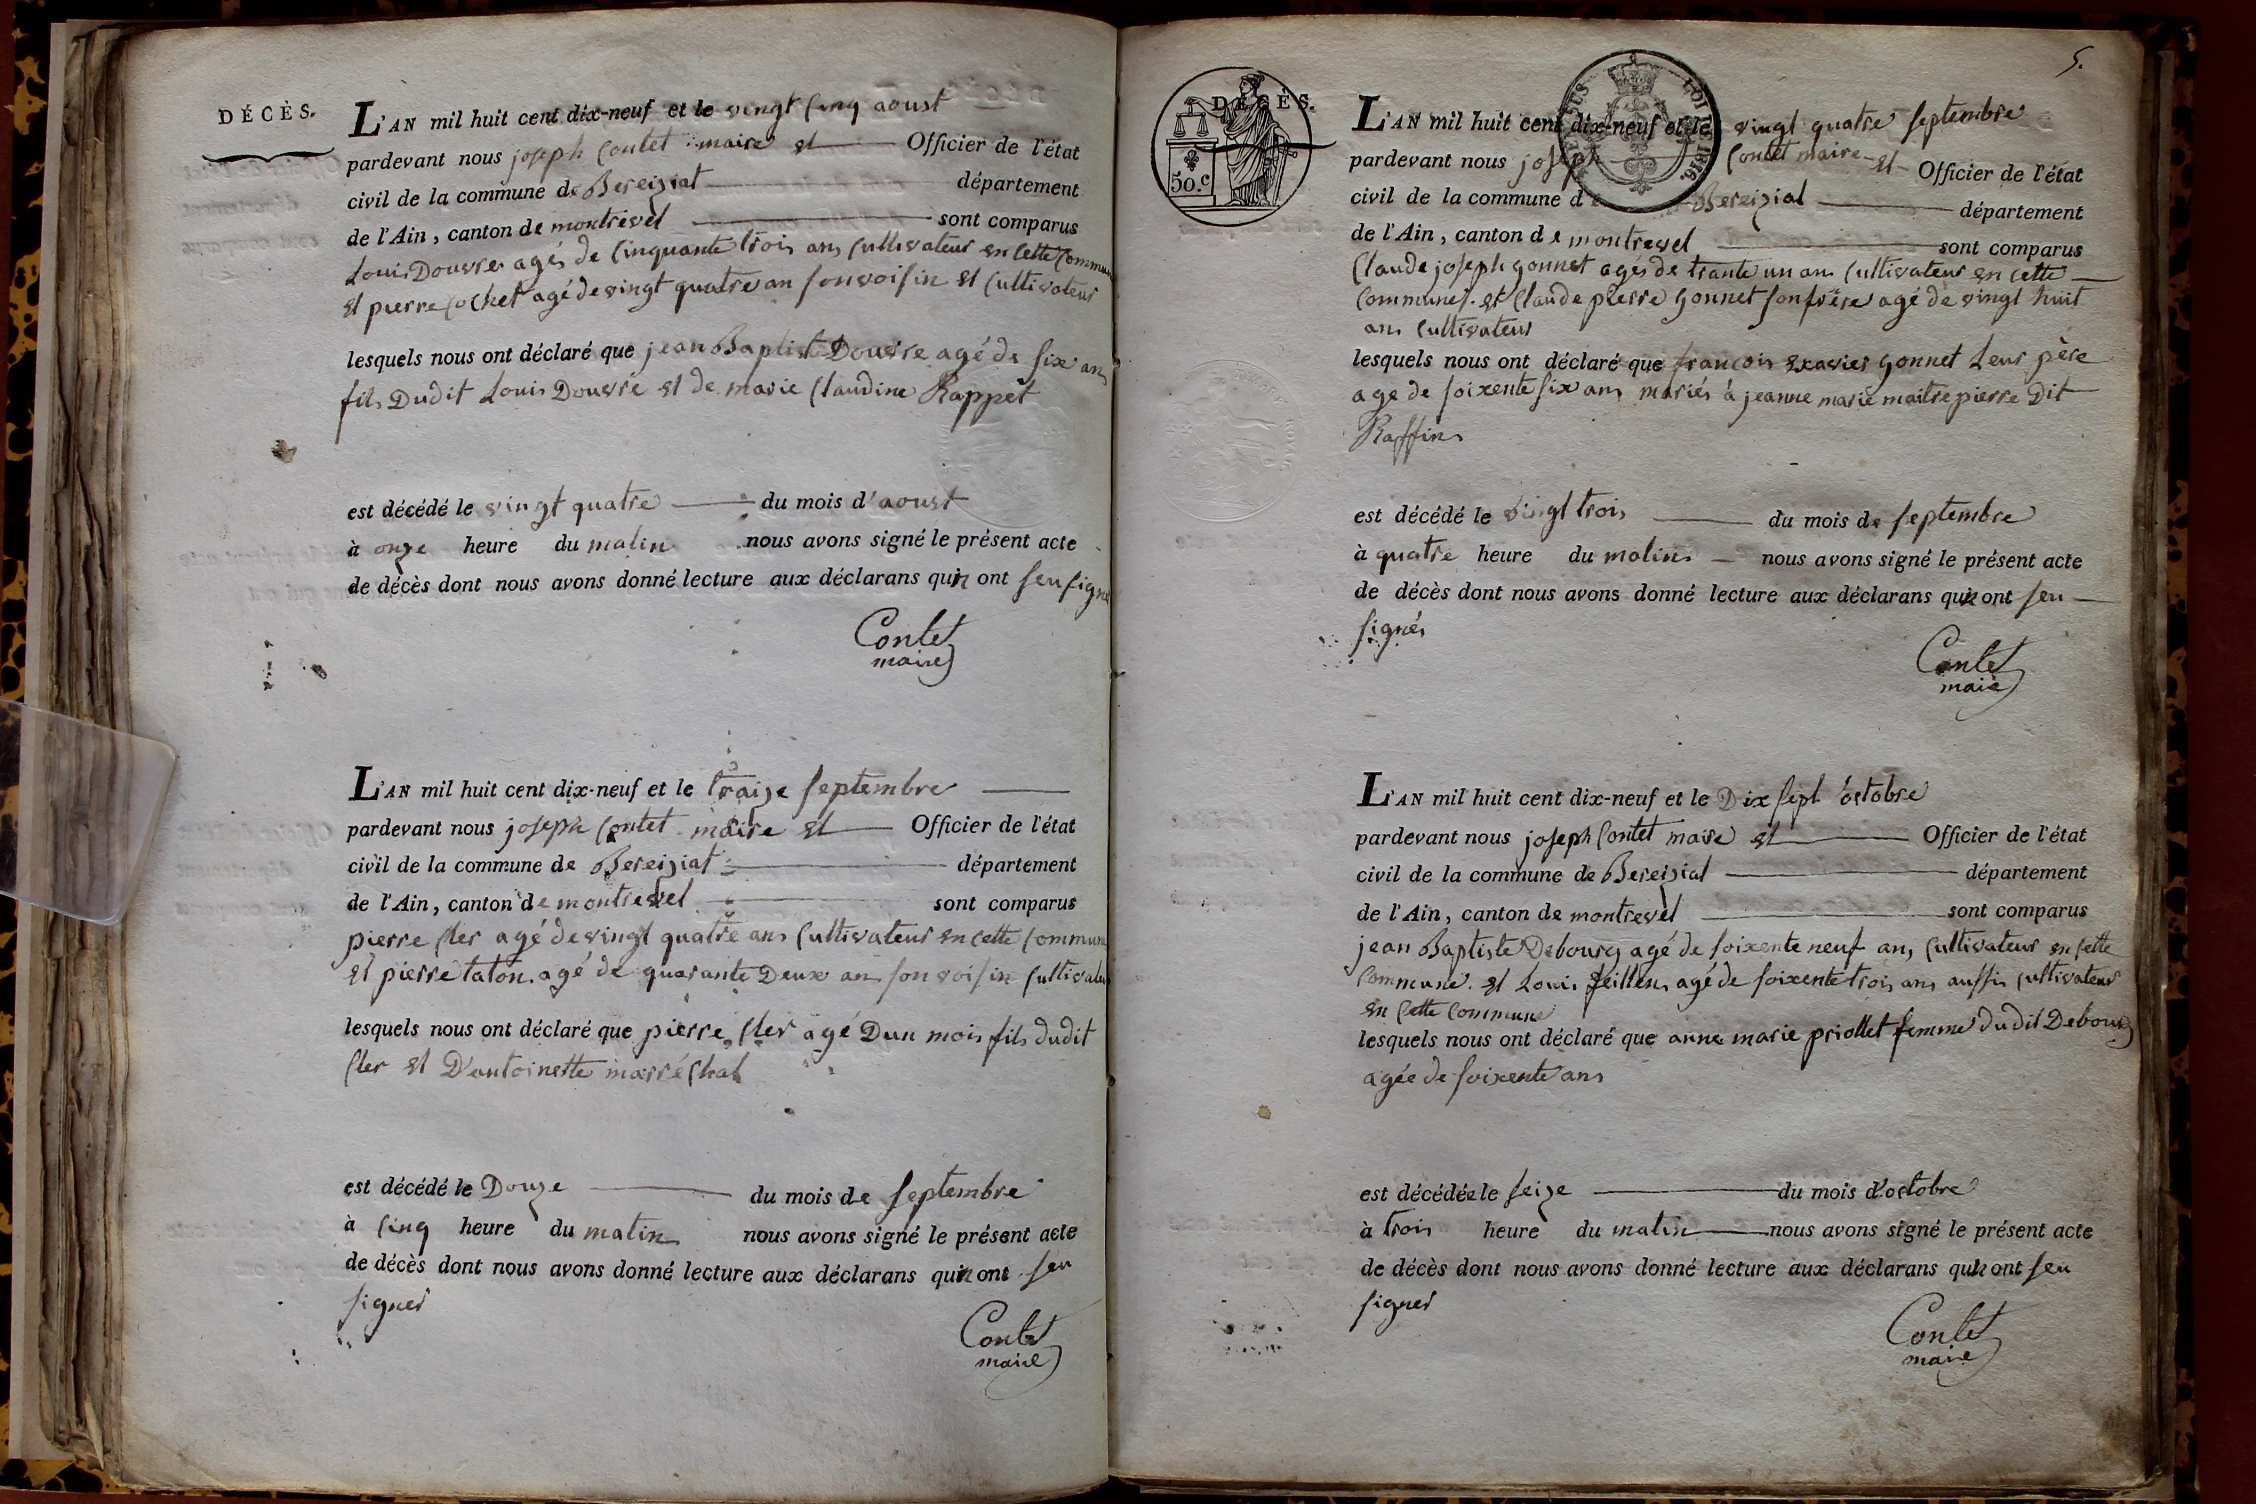 DÉCÈS.
L'AN mil huit cent dix-neuf et le vingt cinq aoust
pardevant nous joseph Contet maire et Officier de l'état
civil de la commune de Bereiziat département
de l'Ain, canton de montrevel sont comparus
Louis Douvre agés de Cinquante trois ans Cultivateur en Cette Commune
et pierre Cochet agé de vingt quatre an son voisin et Cultivateur
lesquels nous ont déclaré que jean Baptist Douvre agé de six ans
fils Dudit Louis Douvre et de marie Claudine Rappet
est décédé le vingt quatre du mois d'aoust
à onze heure du matin nous avons signé le présent acte
de décès dont nous avons donné lecture aux déclarans quin ont seu signé
Contet
maire
L'AN mil huit cent dix-neuf et le traize septembre
pardevant nous joseph Contet maire et Officier de l'état
civil de la commune de Bereiziat département
de l'Ain, canton de montrevel sont comparus
pierre Cler agé de vingt quatre ans Cultivateur en cette Commune
et pierre taton agé de quarante Deux an son voisin Cultivateur
lesquels nous ont déclaré que pierre Cler agé Dun mois fils dudit
Cler et D'antoinette marréchal
est décédé le Douze du mois de septembre
à Cinq heure du matin nous avons signé le présent acte
de décès dont nous avons donné lecture aux déclarans quin ont seu
signer
Contet
maire
5.
DÉCÈS.
50.c
L'AN mil huit cent dix-neuf et le vingt quatre septembre
pardevant nous joseph Contet maire et Officier de l'état
civil de la commune de Bereizial département
de l'Ain, canton de montrevel sont comparus
Claude joseph gonnet agés de trante un ans Cultivateur en cette
Commune. et Claude pierre gonnet son frère agé de vingt huit
ans Cultivateur
lesquels nous ont déclaré que francois exavier gonnet Leur père
age de soixente six ans mariés à jeanne marie maitrepierre Dit
Raffin
est décédé le vingt trois du mois de septembre
à quatre heure du matin nous avons signé le présent acte
de décès dont nous avons donné lecture aux déclarans quin ont seu
signés
Contet
maire
L'AN mil huit cent dix-neuf et le Dix sept octobre
pardevant nous joseph Contet maire et Officier de l'état
civil de la commune de Bereizial département
de l'Ain, canton de montrevel sont comparus
jean Baptiste Debourg agé de soixente neuf ans Cultivateur en cette
Commune. et Louis feillens agé de soixente trois ans aussi cultivateur
en Cette Commune
lesquels nous ont déclaré que anne marie priollet femme dudit Debourg
agée de soixente ans
est décédée le seize du mois d'octobre
à trois heure du matin nous avons signé le présent acte
de décès dont nous avons donné lecture aux déclarans quin ont seu
signer
Contet
maire